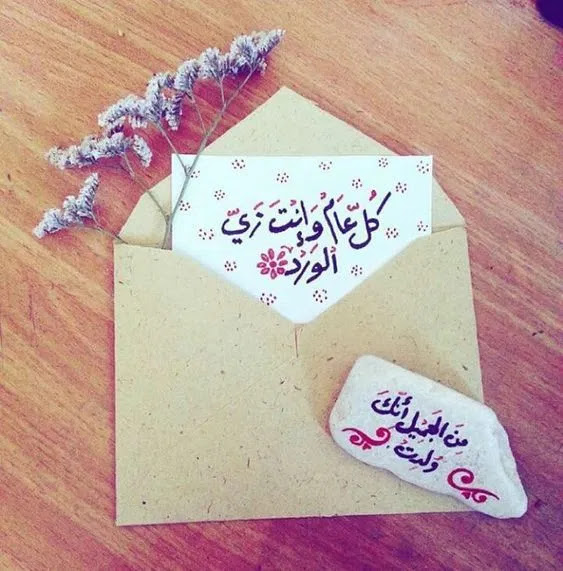 كُلّ عَامْ وَإنْتَ زَيّ
الوَرْد
مِنَ الجَمِيل أَنَّكَ
وُلِدتْ